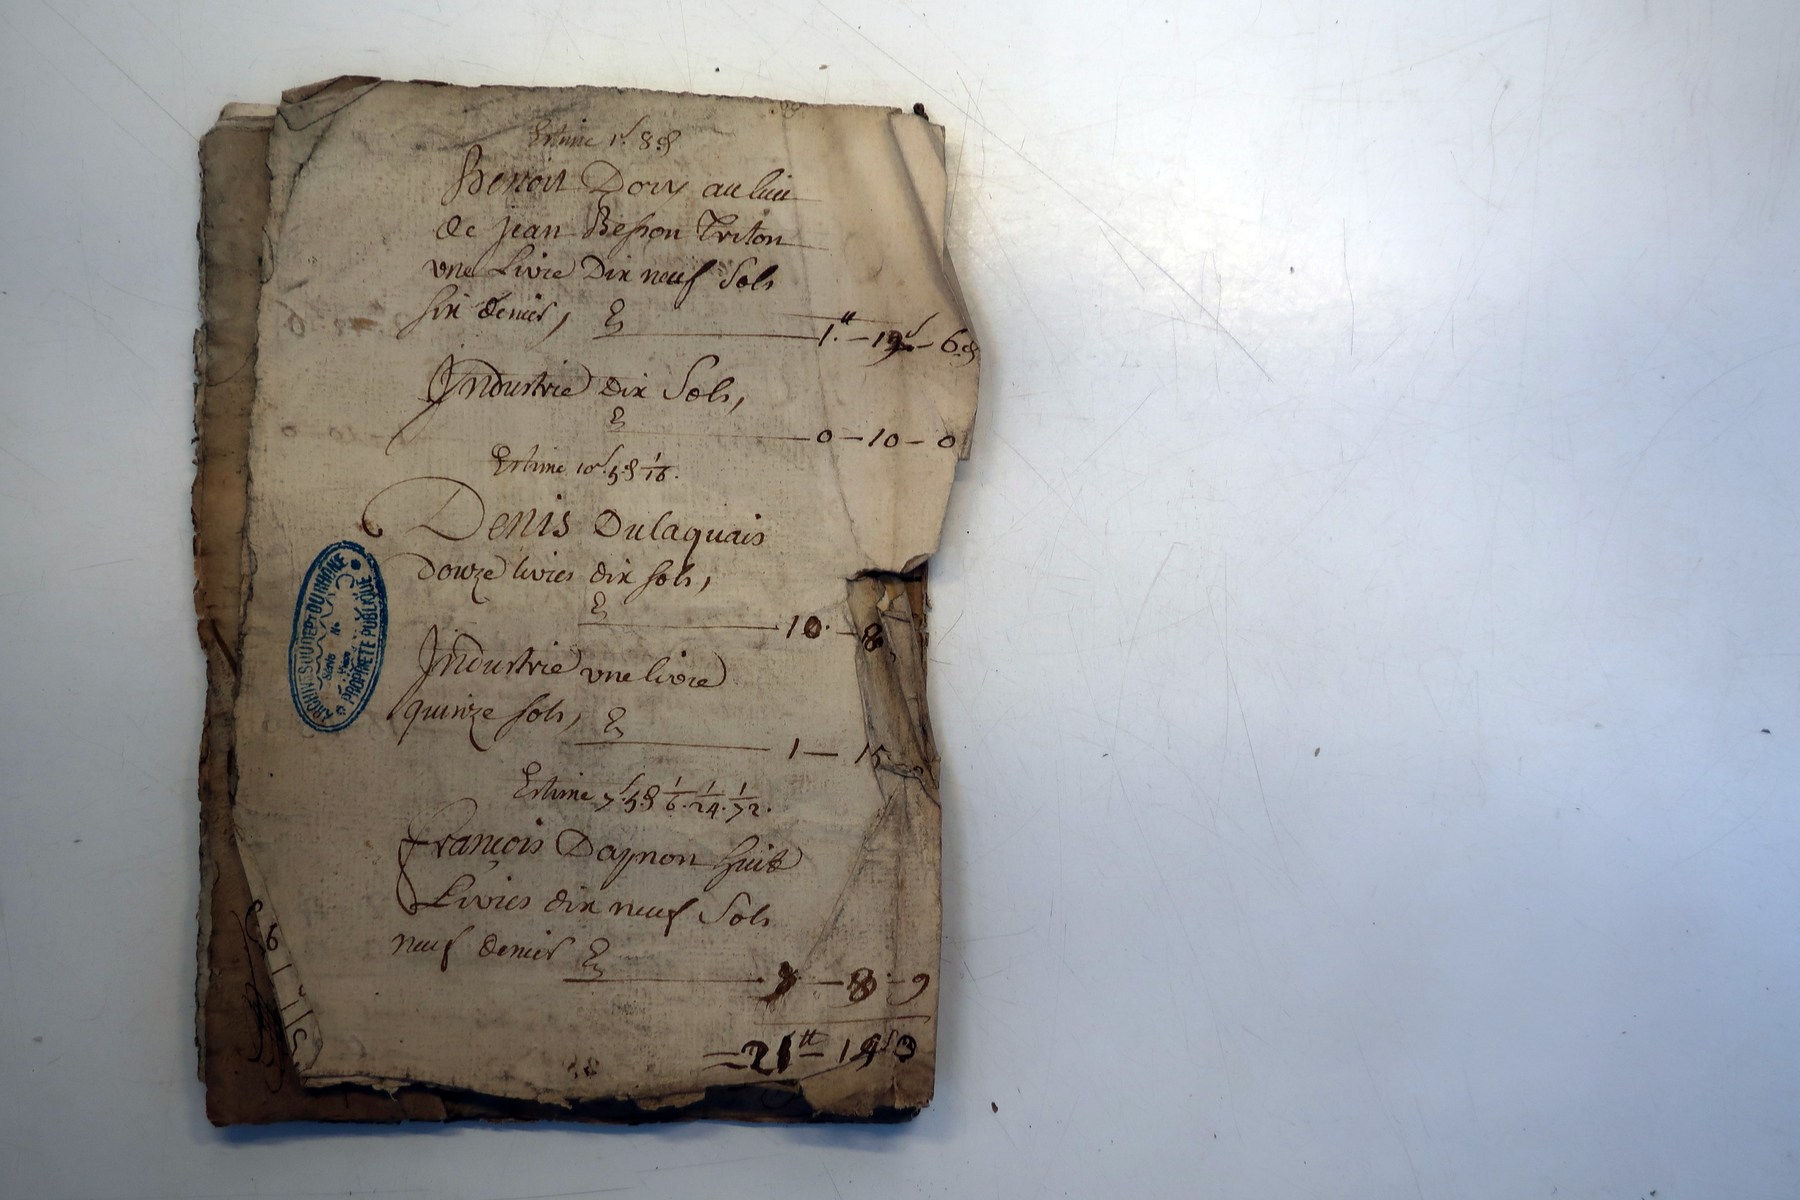 Estime 1s 8d
Benoit Dory au lieu
de jean Besson Triton
vne Livre Dix neuf Sols
six deniers,
1.tt – 19s – 6d
Jndustrie dix Sols,
0 – 10 – 0
Estime 10s. 5d 1/16.
Denis Dulaquais
douze livres dix sols,
10. – 8
Jndustrie vne livre
quinze sols,
1 – 15
Estime 7s. 5d 1/6. 1/24. 1/72.
françois Daynon huit
Livres dix neuf Sols
neuf deniers
– 8 – 9
21tt – 1
ARCHIVES DU DEPT DU RHÔNE
PROPRIETE PUBLIQUE